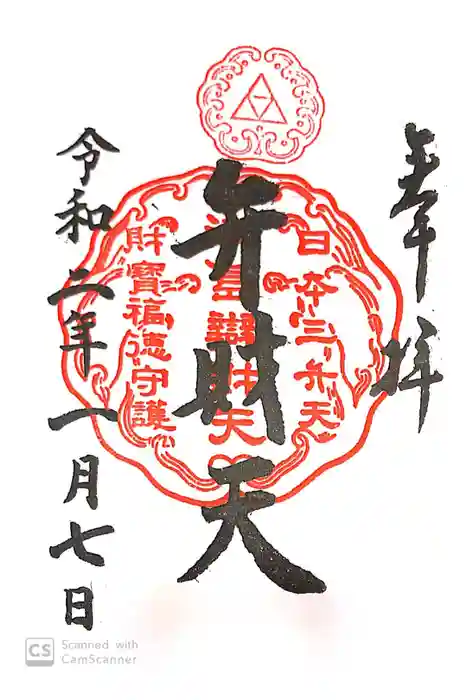 奉拝
日本三弁天
弁財天
財寶福徳守護
令和二年一月七日
CS
Scanned with
CamScanner